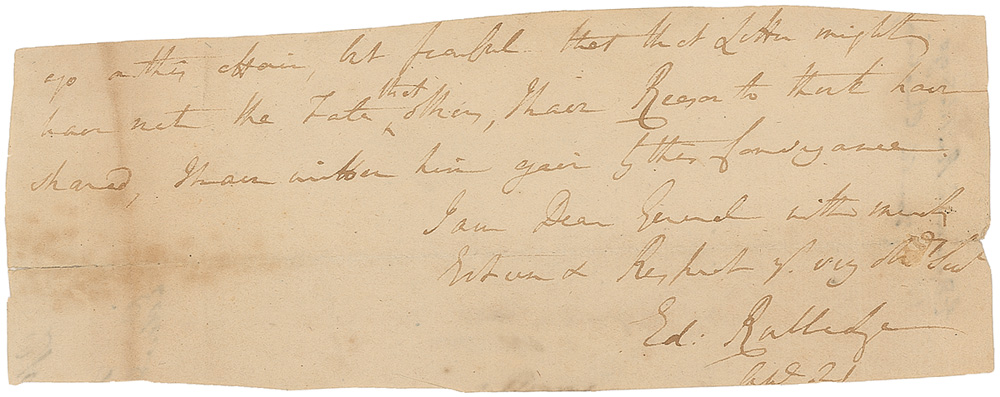 go on this affair, but fearful that that Letter might
have met the Fate that others, I have Reason to think have
shared, I have written him again by this Conveyance.
I am Dear General with much
Esteem & Respect yr. very obd. Sert
Ed: Rutledge